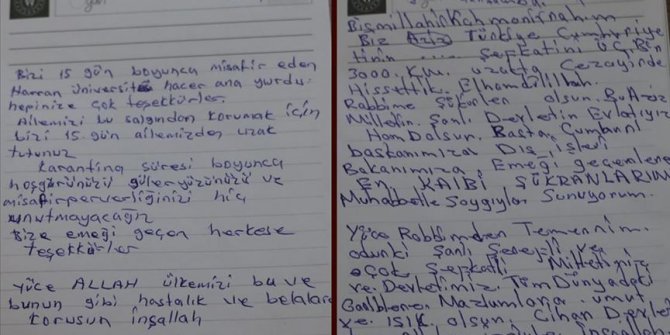 Bizi 15 gün boyunca misafir eden
Harran üniversitesi hacer ana yurdu.
hepinize çok teşekkürler.
Ailemizi bu salgından korumak için
bizi 15 gün ailemizden uzak
tutunuz
Karantina süresi boyunca
hoşgörünüzü güleryüzünüzü ve
misafirperverliğinizi hiç
unutmayacağız
Bize emeği geçen herkese
teşekkürler
yüce ALLAH ülkemizi bu ve
bunun gibi hastalık ve belalardan
korusun inşallah
Bismillahirrahmanirrahim
Biz Aziz Türkiye Cumhuriye
tinin .... Şefkatini üç Bin
3000 Km. uzakta Cezayirde
Hissettik. Elhamdillilah
Rabbime Şükürler olsun. Bu Aziz
Milletin. Şanlı Devletin Evladıyız
Hamdolsun. Başta Cumhur
başkanımıza. Dış işleri
Bakanımıza. Emeği geçenlere
En KALBİ ŞÜKRANLARIMI
Muhabbetle Saygıyla Sunuyorum.
Yüce Rabbimden Temennim.
odurki Şanlı Şerefli ve
oçok Şefkatli Milletimiz
ve Devletimiz. Tüm Dünyadaki
Mazlumlara umut
ve ışık olsun. Cihan Devleti